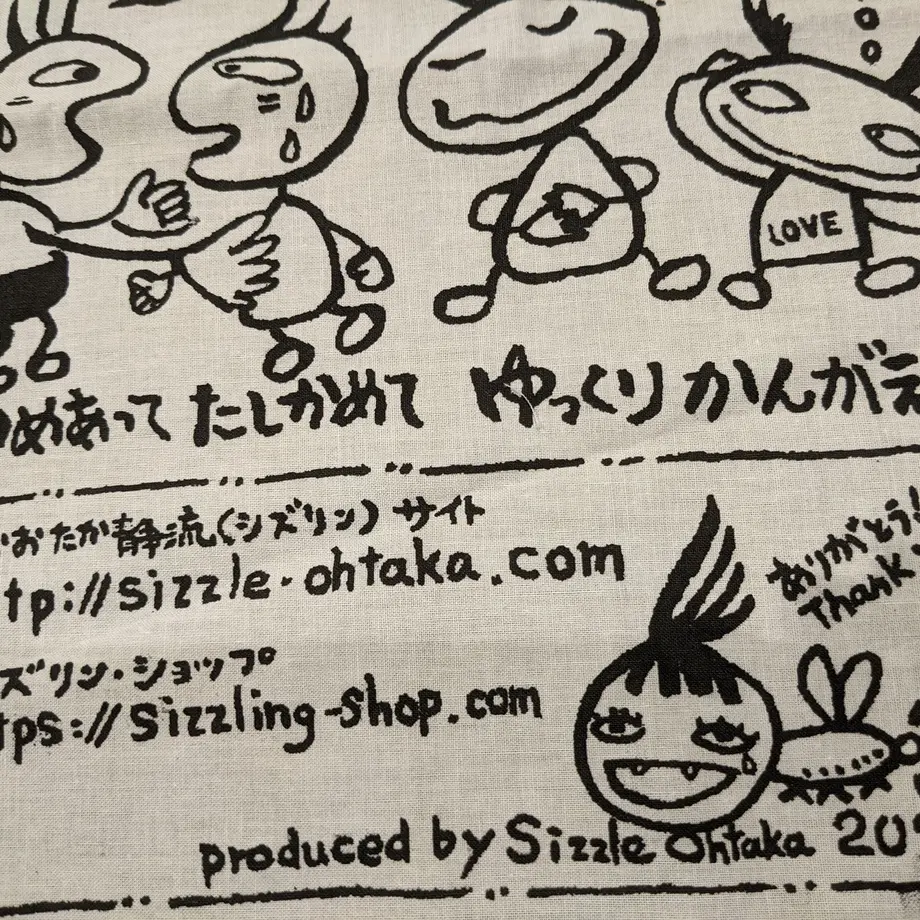 LOVE
めあって たしかめて ゆっくり かんがえ
おおたか静流(シズリン) サイト
tp://sizzle-ohtaka.com
ズリン・ショップ
tps://sizzling-shop.com
ありがとう
Thank
produced by Sizzle Ohtaka 20